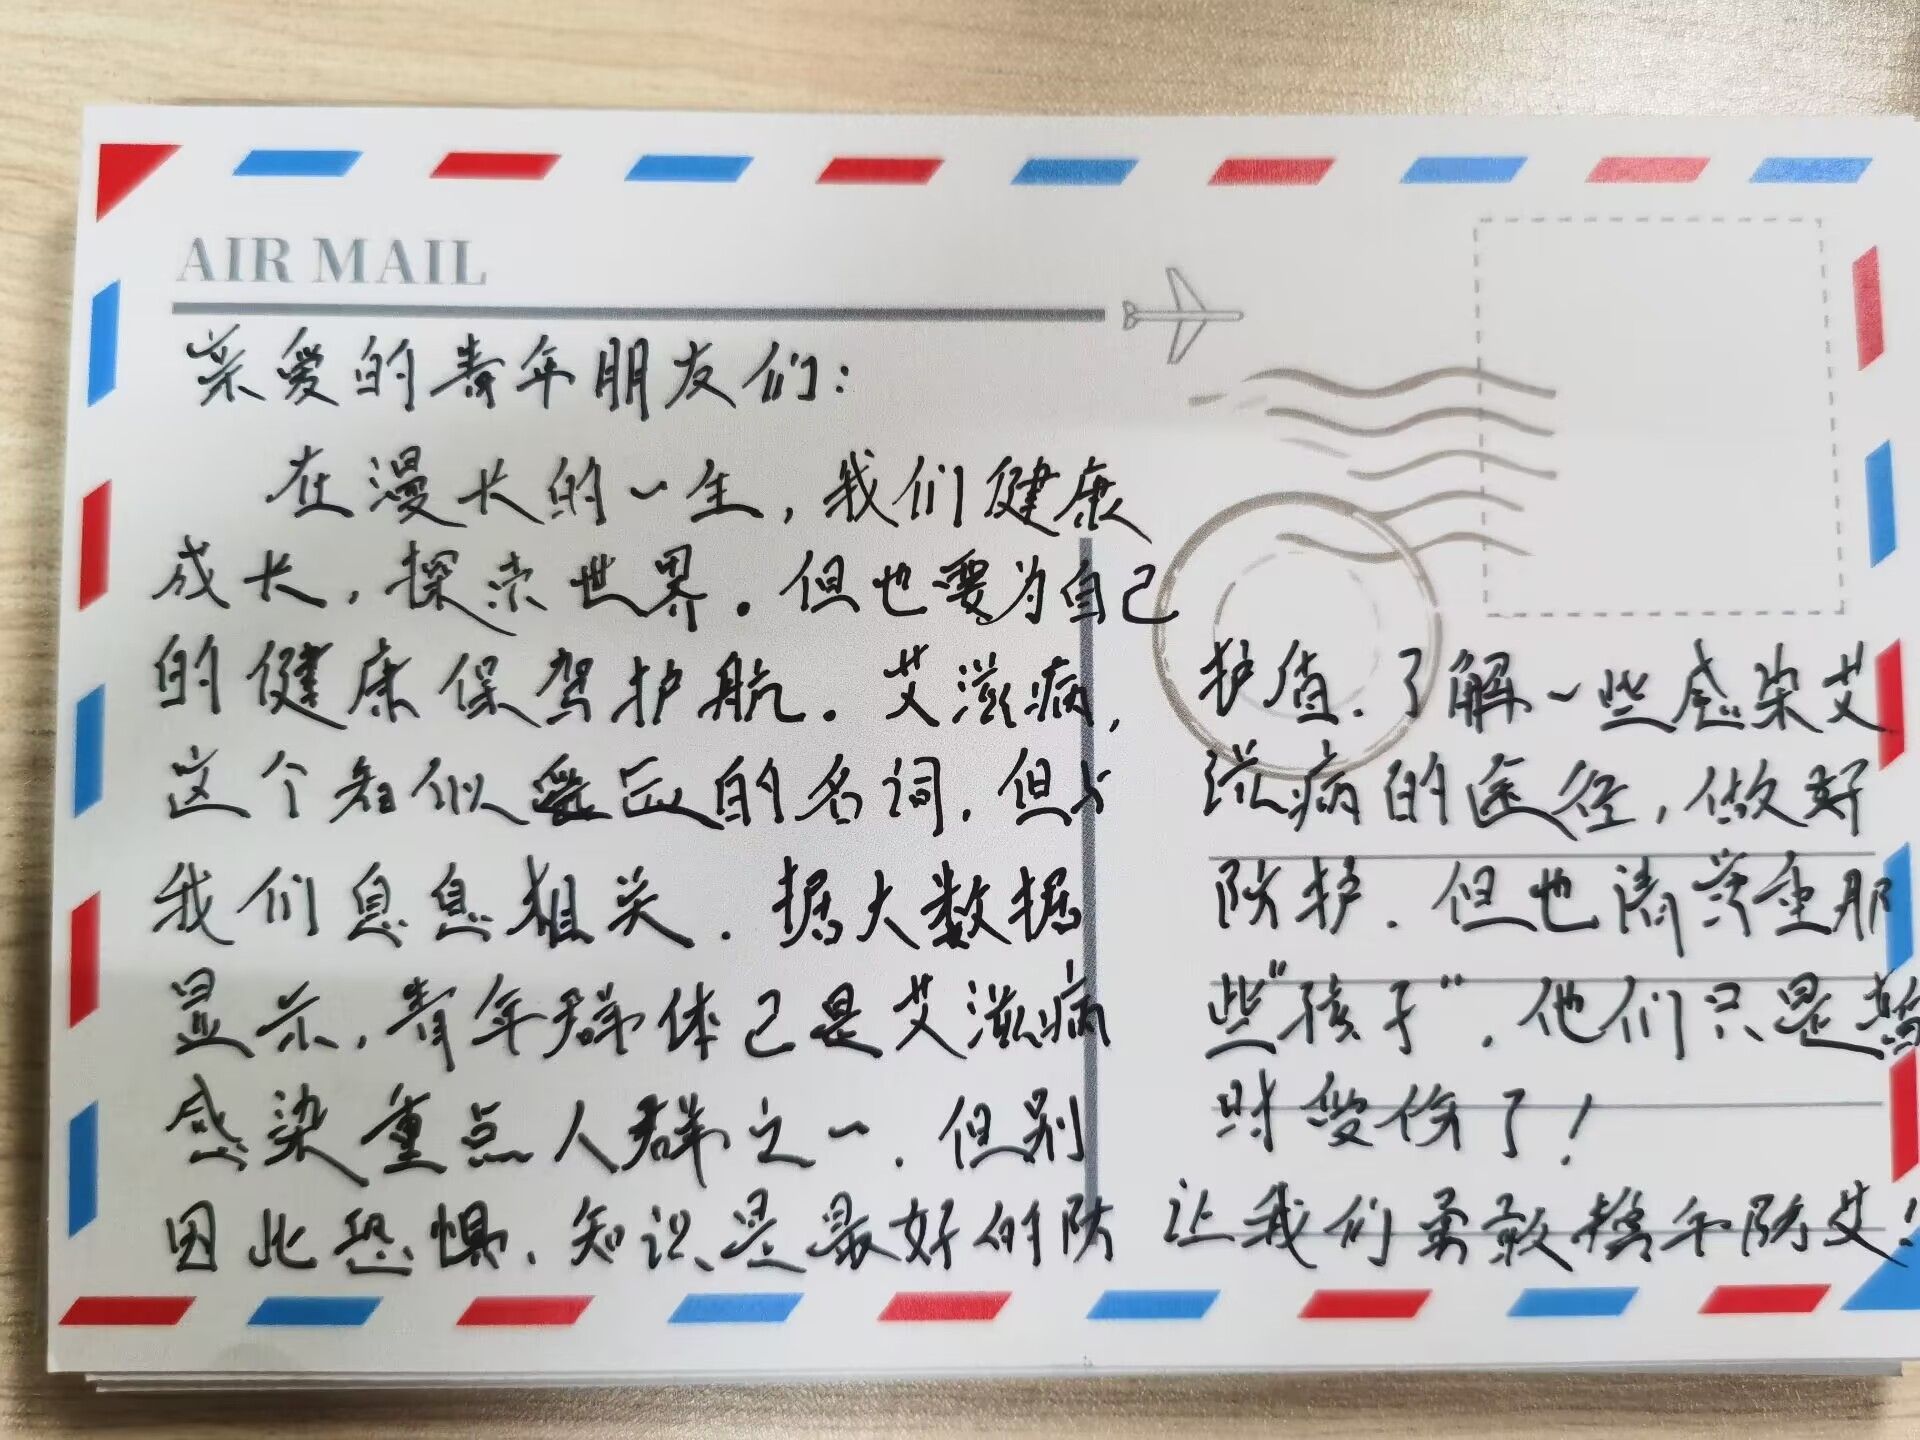 AIR MAIL
亲爱的青年朋友们：
在漫长的一生，我们健康
成长，探索世界。但也要为自己
的健康保驾护航。艾滋病，
这个看似遥远的名词，但与
我们息息相关。据大数据
显示，青年群体已是艾滋病
感染重点人群之一。但别
因此恐惧，知识是最好的防
护值。了解一些感染艾
滋病的途径，做好
防护。但也请尊重那
些"孩子"。他们只是暂
时受伤了！
让我们勇敢携手防艾！